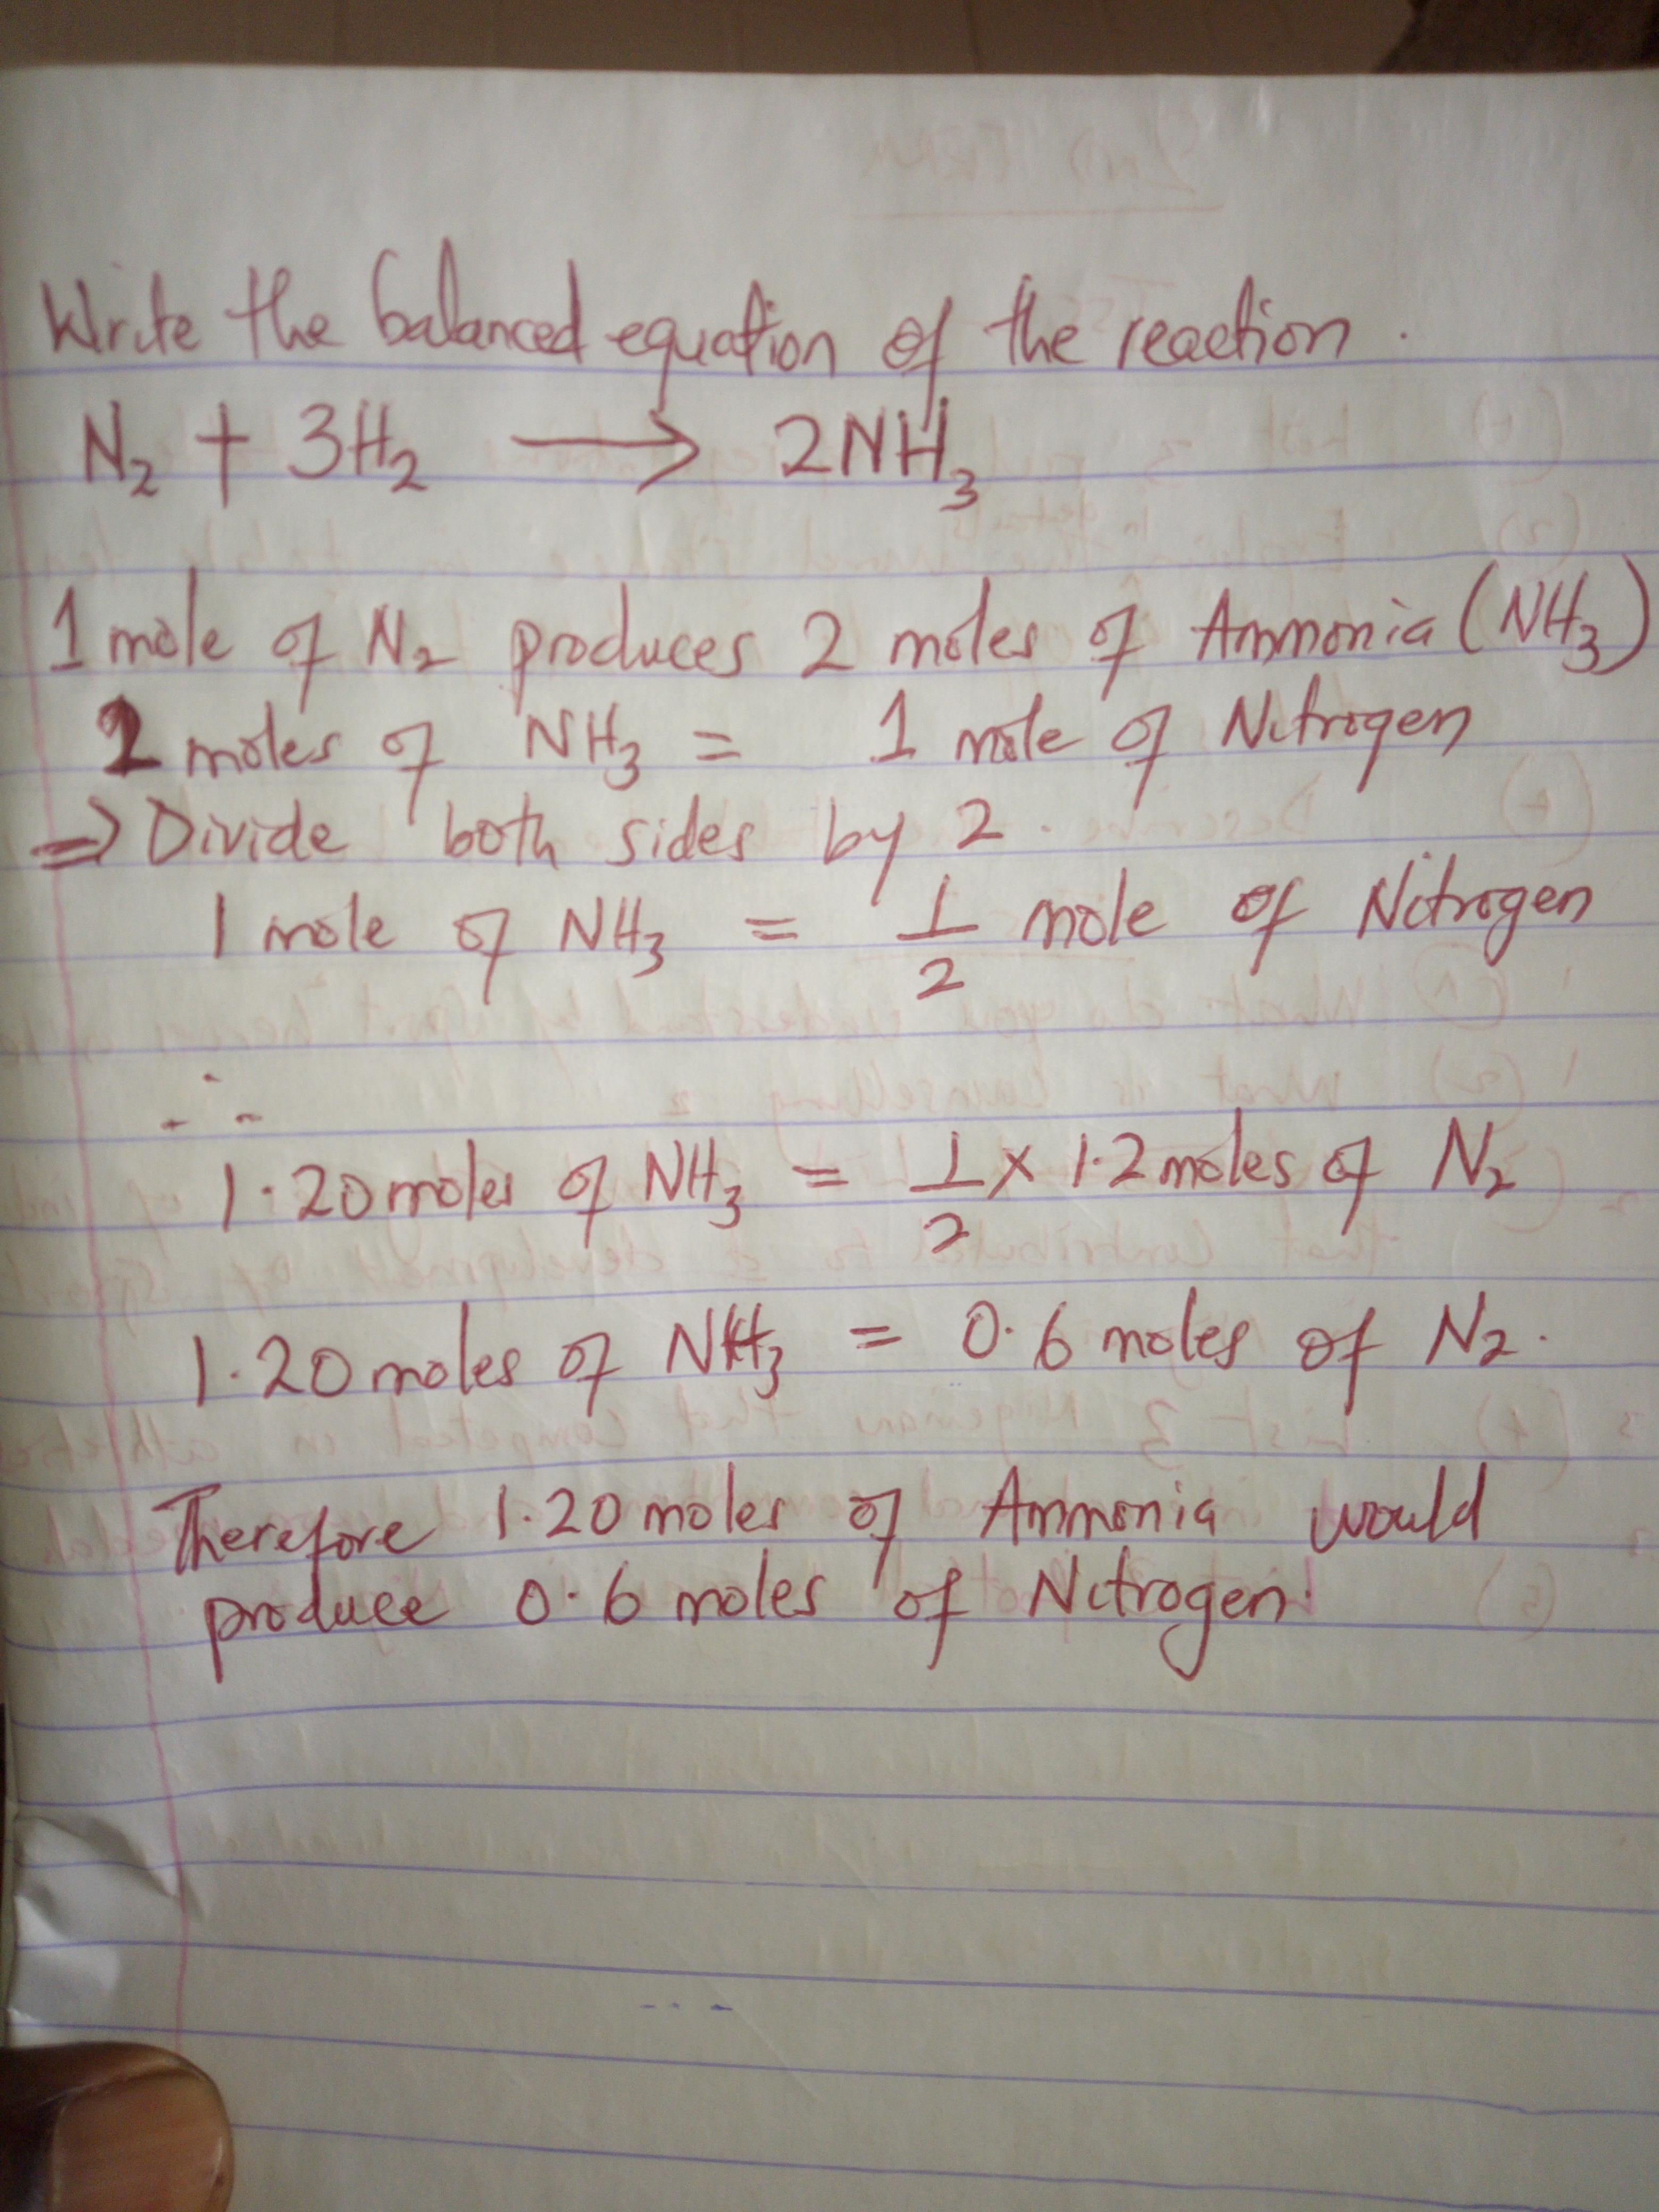 Write the balanced equation of the reaction.
N₂ + 3H₂ → 2NH₃
1 mole of N₂ produces 2 moles of Ammonia (NH₃)
2 moles of NH₃ = 1 mole of Nitrogen
⇒ Divide both sides by 2.
1 mole of NH₃ = 1/2 mole of Nitrogen
∴
1.20 moles of NH₃ = 1/2 × 1.2 moles of N₂
1.20 moles of NH₃ = 0.6 moles of N₂.
Therefore 1.20 moles of Ammonia would
produce 0.6 moles of Nitrogen.